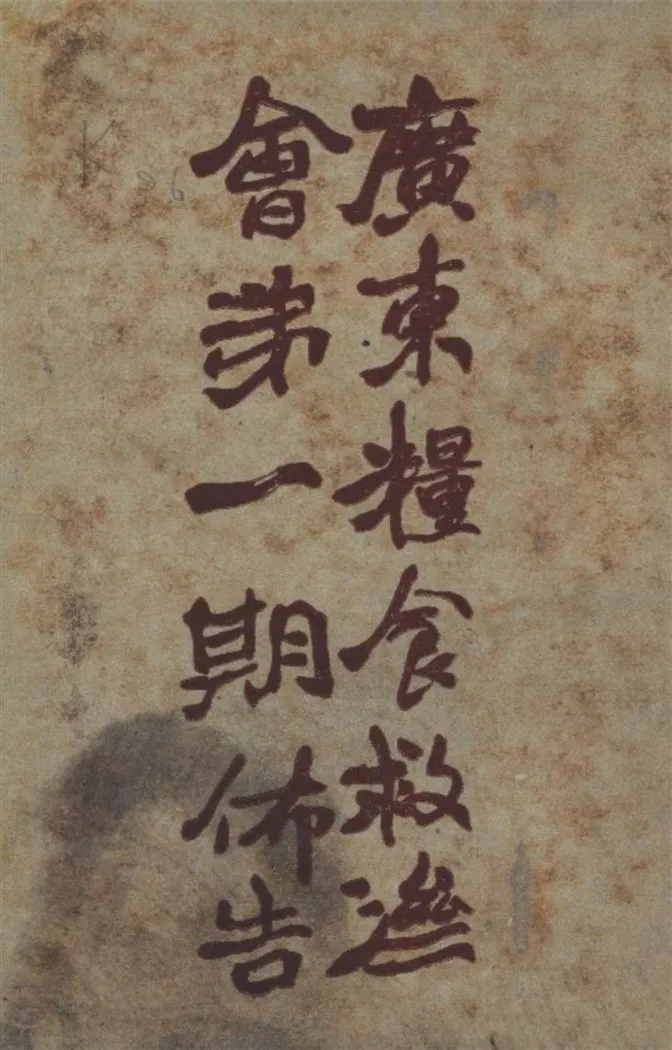 廣東糧食救濟
會第一期佈告
K 86